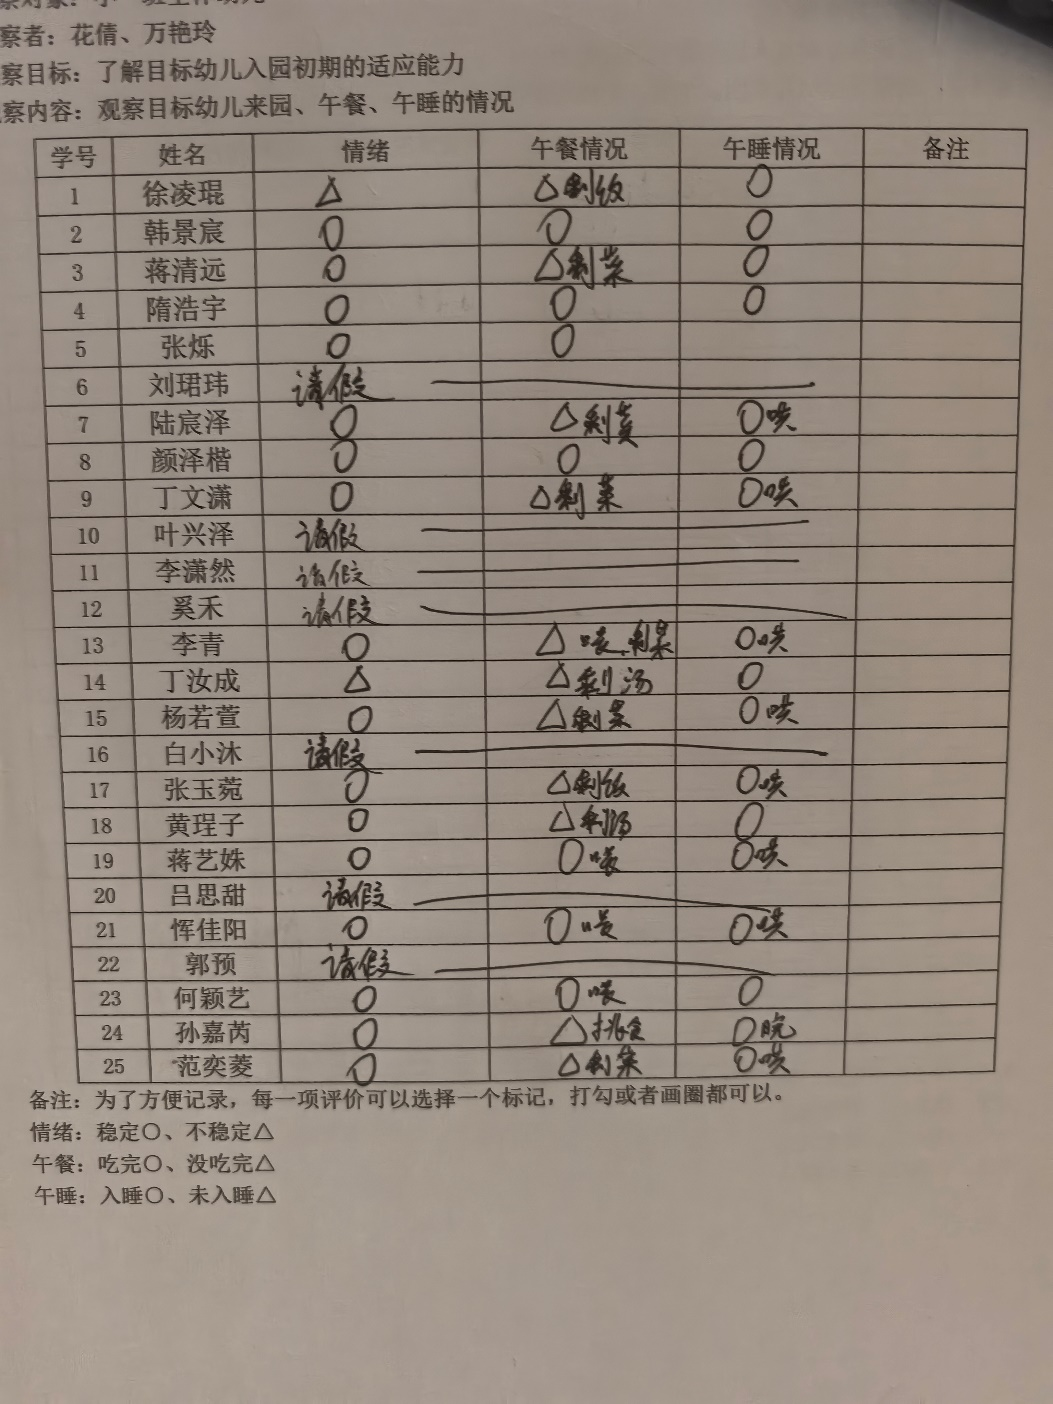 察者：花倩、万艳玲
察目标：了解目标幼儿入园初期的适应能力
察内容：观察目标幼儿来园、午餐、午睡的情况
学号 姓名 情绪 午餐情况 午睡情况 备注
1 徐凌琨 △ △剩饭 〇
2 韩景宸 〇 〇 〇
3 蒋清远 〇 △剩菜 〇
4 隋浩宇 〇 〇 〇
5 张烁 〇 〇
6 刘珺玮 请假
7 陆宸泽 〇 △剩菜 〇哄
8 颜泽楷 〇 〇 〇
9 丁文潇 〇 △剩菜 〇哄
10 叶兴泽 请假
11 李潇然 请假
12 奚禾 请假
13 李青 〇 △喂、剩菜 〇哄
14 丁汝成 △ △剩汤 〇
15 杨若萱 〇 △剩菜 〇哄
16 白小沐 请假
17 张玉菀 〇 △剩饭 〇哄
18 黄珵子 〇 △剩汤 〇
19 蒋艺姝 〇 〇喂 〇哄
20 吕思甜 请假
21 恽佳阳 〇 〇喂 〇哄
22 郭预 请假
23 何颖艺 〇 〇喂 〇
24 孙嘉芮 〇 △挑食 〇晚
25 范奕菱 〇 △剩菜 〇哄
备注：为了方便记录，每一项评价可以选择一个标记，打勾或者画圈都可以。
情绪：稳定〇、不稳定△
午餐：吃完〇、没吃完△
午睡：入睡〇、未入睡△